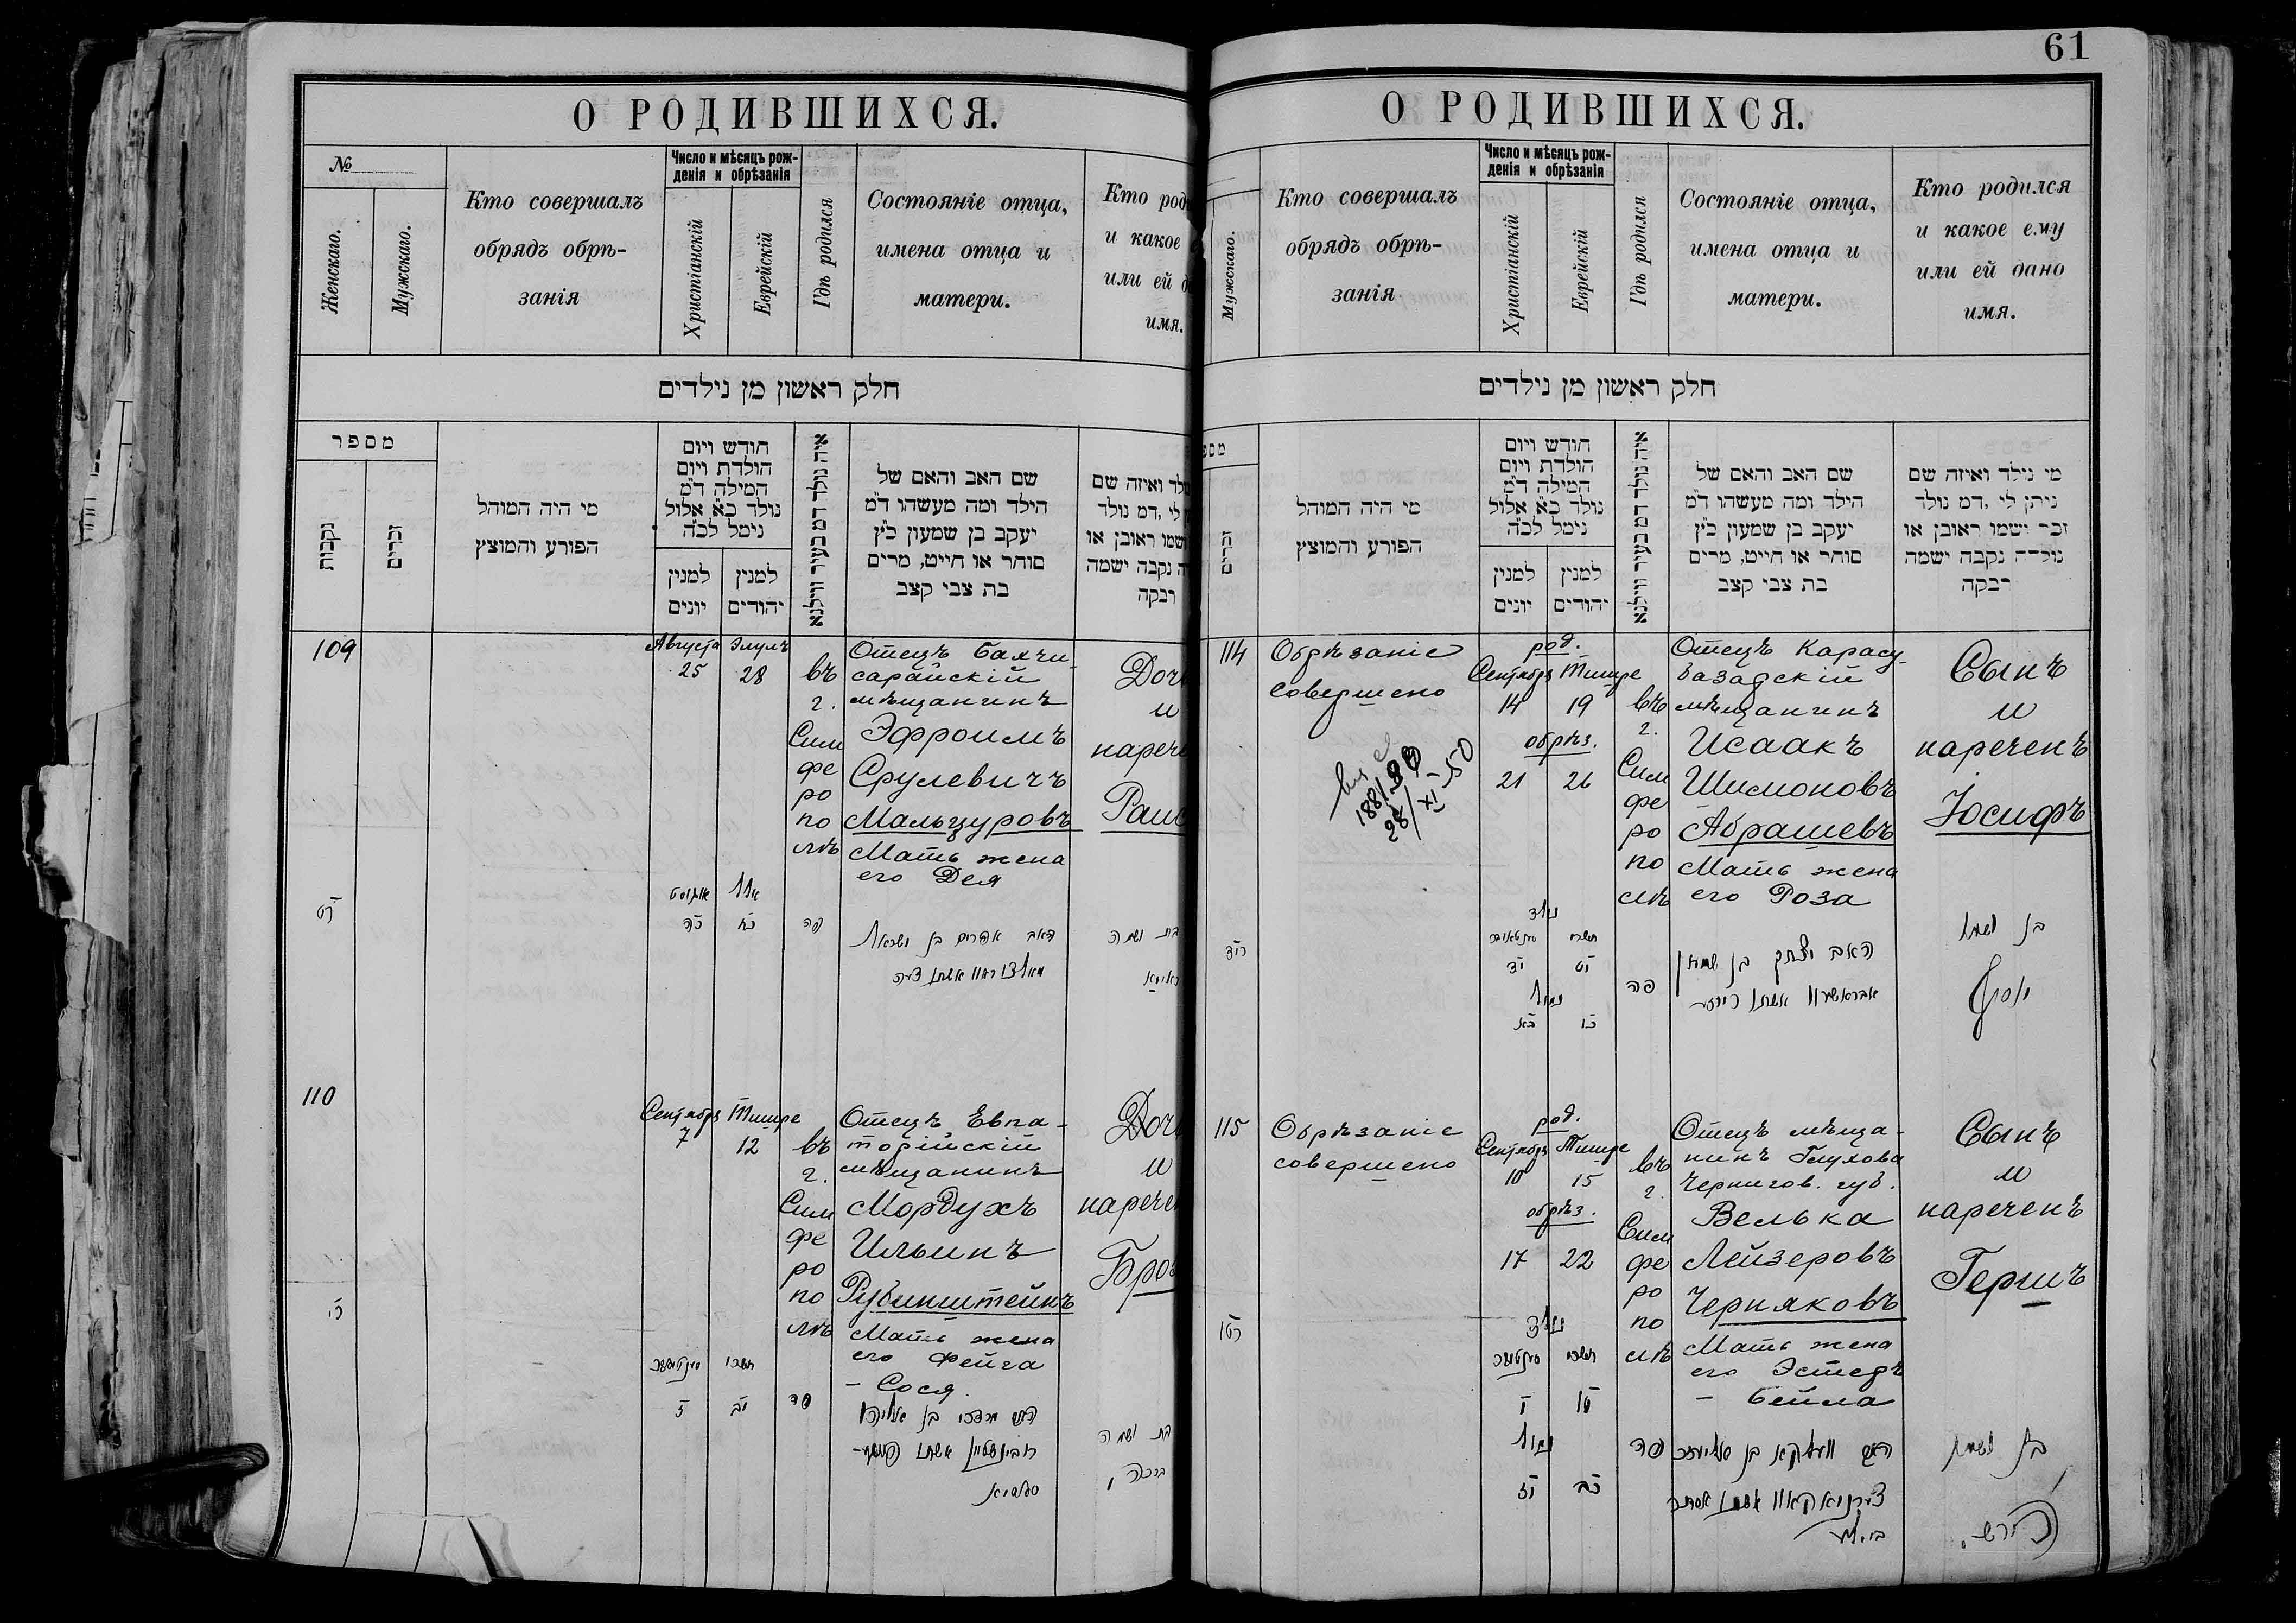 О РОДИВШИХСЯ.
№
Женскаго.
Мужскаго.
Кто совершалъ
обрядъ обрѣ-
занія
Число и мѣсяцъ рож-
денія и обрѣзанія
Христіанскій
Еврейскій
Гдѣ родился
Состояніе отца,
имена отца и
матери.
Кто род
и какое
или ей д
имя.
חלק ראשון מן נילדים
מספר
נקבות
זכרים
מי היה המוהל
הפורע והמוצץ
חודש ויום
הולדת ויום
המילה ד"מ
נולד כ"א אלול
נימל לכ"ה
למנין
יונים
למנין
יהודים
איה נולד דמ בעיר ווילנא
שם האב והאם של
הילד ומה מעשהו ד"מ
יעקב בן שמעון כ"ץ
סוחר או חייט, מרים
בת צבי קצב
ולד ואיזה שם
לי ,דמ נולד
ישמו ראובן או
ה נקבה ישמה
רבקה
109
Августа Элулъ
25 28
въ
г.
Сим
фе
ро
по
лѣ
Отецъ Бахчи-
сарайскій
мѣщанинъ
Эфроимъ
Срулевичъ
Мальцуровъ
Мать жена
его Дея
Доч
и
нарече
Раи
רט
אויגוסט אלול
כה כח
פה
האב אפרים בן ישראל
בת ושמה
110
Сентябрь Тишре
7 12
въ
г.
Сим
фе
ро
по
лѣ
Отецъ Евпа-
торійскій
мѣщанинъ
Мордухъ
Ильинъ
Рубинштейнъ
Мать жена
его Фейга
- Сося.
Дочь
и
наречен
Бро
תשרי
ז יב
פה
האב מרדכי בן אליהו
רובינשטיין אשתו פייגע-
סאסיא
בת ושמה
61
О РОДИВШИХСЯ.
Мужскаго.
Кто совершалъ
обрядъ обрѣ-
занія
Число и мѣсяцъ рож-
денія и обрѣзанія
Христіанскій
Еврейскій
Гдѣ родился
Состояніе отца,
имена отца и
матери.
Кто родился
и какое ему
или ей дано
имя.
חלק ראשון מן נילדים
מספ
זכרים
מי היה המוהל
הפורע והמוצץ
חודש ויום
הולדת ויום
המילה ד"מ
נולד כ"א אלול
נימל לכ"ה
למנין
יונים
למנין
יהודים
איה נולד דמ בעיר ווילנא
שם האב והאם של
הילד ומה מעשהו ד"מ
יעקב בן שמעון כ"ץ
סוחר או חייט, מרים
בת צבי קצב
מי נילד ואיזה שם
ניתן לי ,דמ נולד
זכר ישמו ראובן או
נולדה נקבה ישמה
רבקה
114
Обрѣзаніе
совершено
28/XI-50
род.
Сентябрь Тишре
14 19
обрѣз.
21 26
въ
г.
Сим
фе
ро
по
лѣ
Отецъ Карасу-
базарскій
мѣщанинъ
Исаакъ
Шимоновъ
Абрашевъ
Мать жена
его Роза
Сынъ
и
нареченъ
Іосифъ
ריד
נולד
תשרי
יד יט
נמול
כא כו
פה
האב יצחק בן שמעון
אבראשעוו אשתו רייזע
בן ושמו
יוסף
115
Обрѣзаніе
совершено
род.
Сентябрь Тишре
10 15
обрѣз.
17 22
въ
г.
Сим
фе
ро
по
лѣ
Отецъ мѣща-
нинъ Глухова
Чернигов. губ.
Велька
Лейзеровъ
Черняковъ
Мать жена
его Эстеръ
- Бейла
Сынъ
и
нареченъ
Гершъ
רטו
נולד
תשרי
י טו
נמול
יז כב
פה
האב וועלקא בן אליעזר
צירניאקאוו אשתו אסתר
ביילע
בן ושמו
הירש.